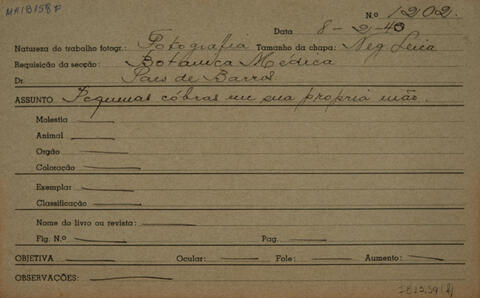 MAIB158F
N.º 1202.
Data 8-2-40
Natureza do trabalho fotogr.: Fotografia Tamanho da chapa: Neg. Leica
Requisição da secção: Botanica Medica
Dr. Paes de Barros
ASSUNTO Pequenas cóbras em sua propria mão.
Molestia
Animal
Orgão
Coloração
Exemplar
Classificação
Nome do livro ou revista:
Fig. N.º Pag.
OBJETIVA Ocular: Fole: Aumento:
OBSERVAÇÕES: